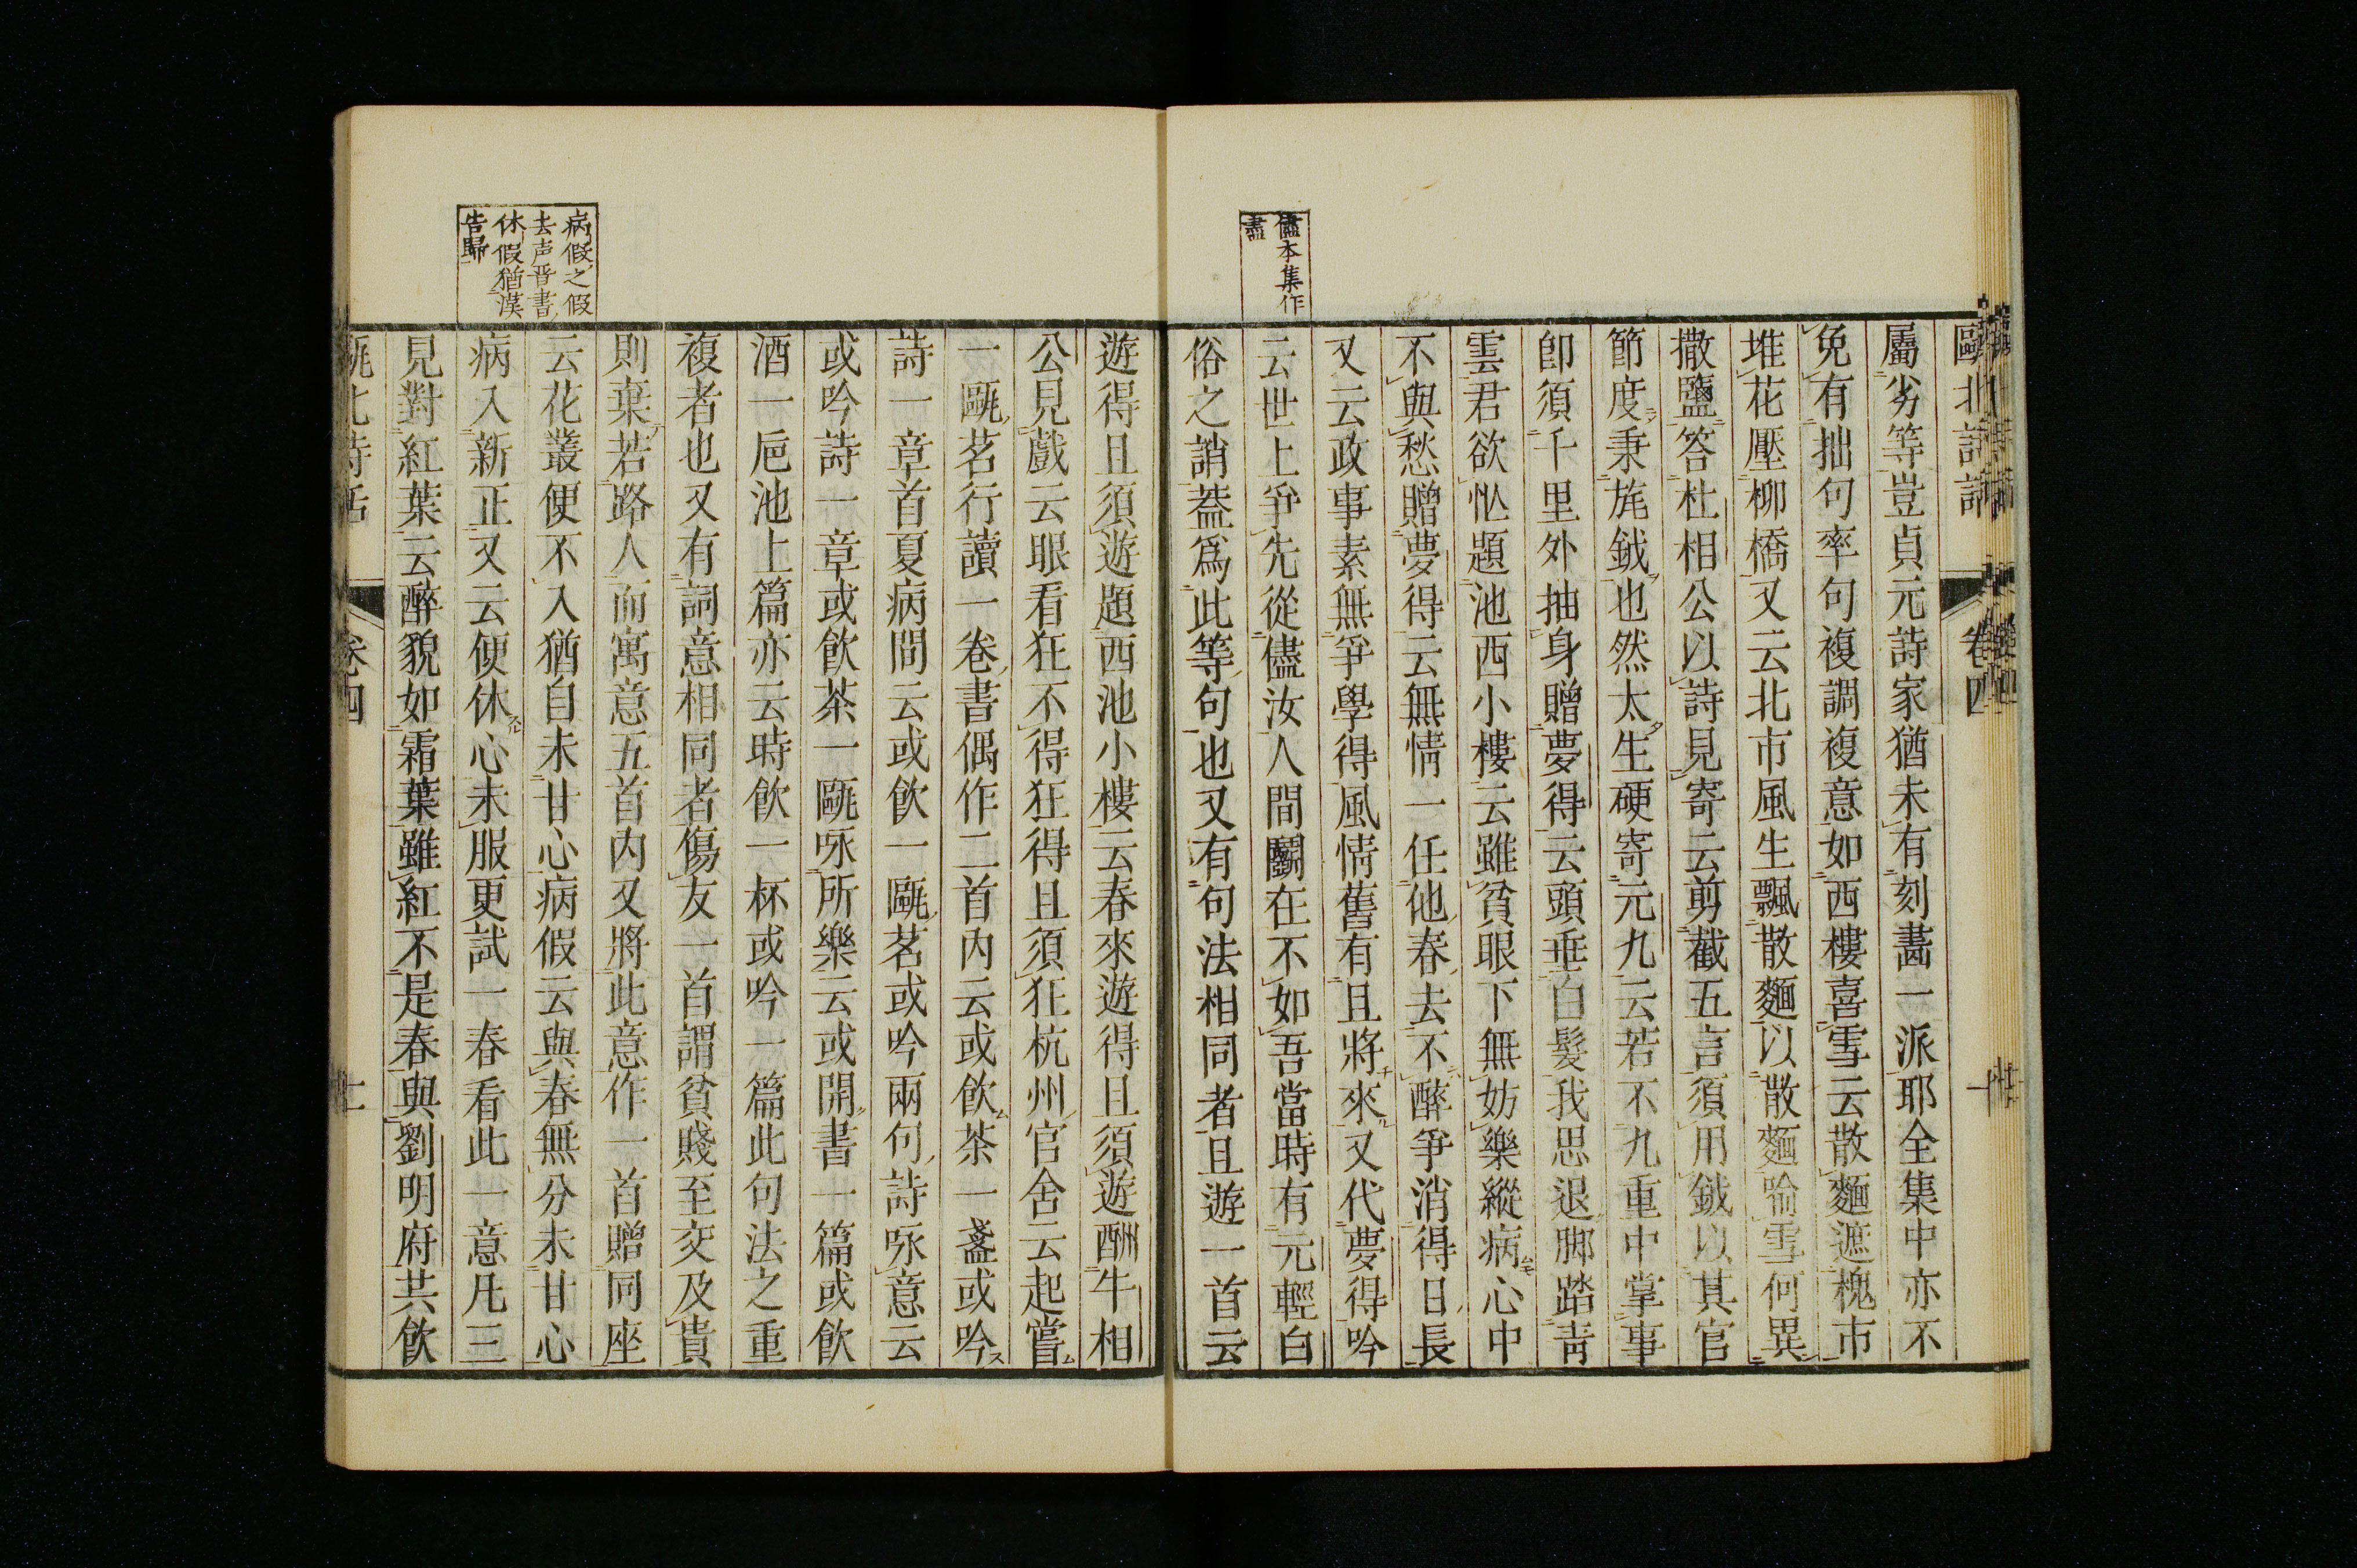 甌北詩話　卷四　十
屬劣等豈貞元詩家猶未有刻畫一派耶全集中亦不
免有拙句率句複調複意如西樓喜雪云散麵遮槐市
堆花壓柳橋又云北市風生飄散麵以散麵喻雪何異
撒鹽答杜相公以詩見寄云剪截五言須用鉞以其官
節度秉旄鉞也然太生硬寄元九云若不九重中掌事
卽須千里外抽身贈夢得云頭垂白髮我思退脚踏青
雲君欲忙題池西小樓云雖貧眼下無妨樂縱病心中
不與愁贈夢得云無情一任他春去不醉爭消得日長
又云政事素無爭學得風情舊有且將來又代夢得吟
儘本集作
盡
云世上爭先從儘汝人間鬭在不如吾當時有元輕白
俗之誚蓋爲此等句也又有句法相同者且遊一首云
遊得且須遊題西池小樓云春來遊得且須遊酬牛相
公見戲云眼看狂不得狂得且須狂杭州官舍云起嘗
一甌茗行讀一卷書偶作二首內云或飮茶一盞或吟
詩一章首夏病間云或飮一甌茗或吟兩句詩咏意云
或吟詩一章或飮茶一甌咏所樂云或開書一篇或飮
酒一巵池上篇亦云時飮一杯或吟一篇此句法之重
複者也又有詞意相同者傷友一首謂貧賤至交及貴
則棄若路人而寓意五首內又將此意作一首贈同座
病假之假
去声晋書
休假猶漢
告歸
云花叢便不入猶自未甘心病假云與春無分未甘心
病入新正又云便休心未服更試一春看此一意凡三
見對紅葉云醉貌如霜葉雖紅不是春與劉明府共飮
甌北詩話　卷四　十一